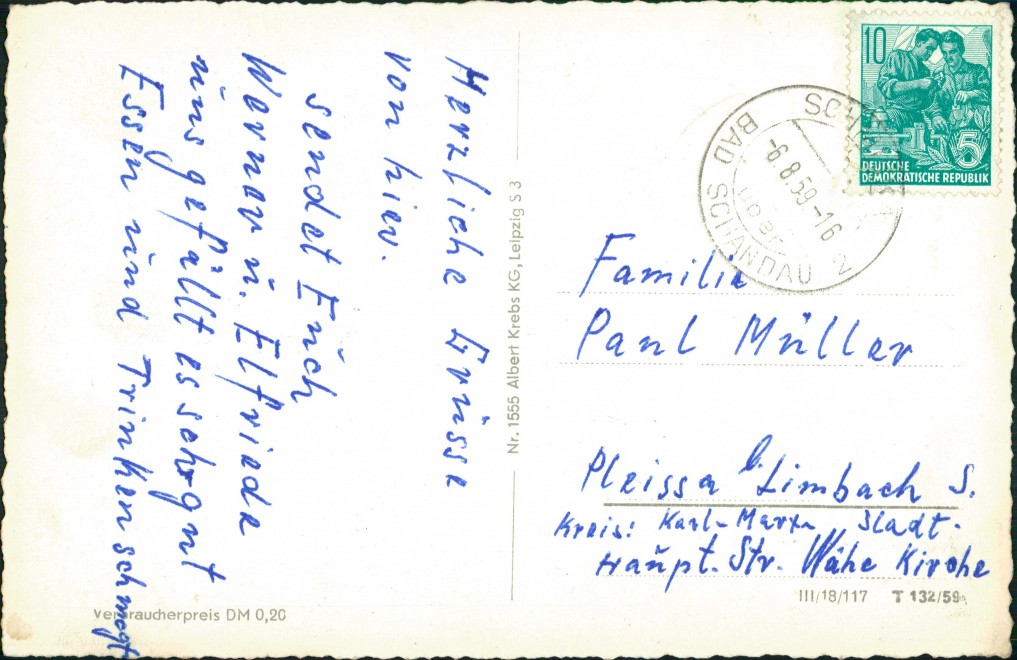 Herzliche Grüsse
von hier.
sendet Euch
Werner u. Elfriede
uns gefällt es sehr gut
Essen und Trinken schmegt
Verbraucherpreis DM 0,20
Nr. 1555 Albert Krebs KG, Leipzig S 3
10
5
DEUTSCHE
DEMOKRATISCHE REPUBLIK
-6.8.59-16
über
BAD SCHANDAU 2
Familie
Paul Müller
Pleissa b. Limbach S.
Kreis: Karl-Marx-Stadt.
Haupt. Str. Nähe Kirche
III/18/117 T 132/59